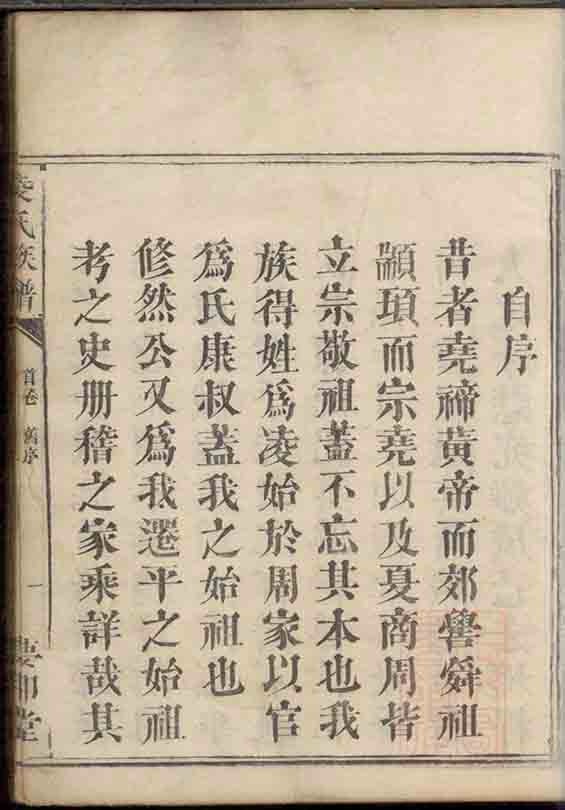 自序
昔者堯禘黃帝而郊嚳舜祖
顓頊而宗堯以及夏商周皆
立宗敬祖蓋不忘其本也我
族得姓爲凌始於周家以官
爲氏康叔蓋我之始祖也
修然公又爲我遷平之始祖
考之史册稽之家乘詳哉其
凌氏族譜
首卷 舊序
一
堂